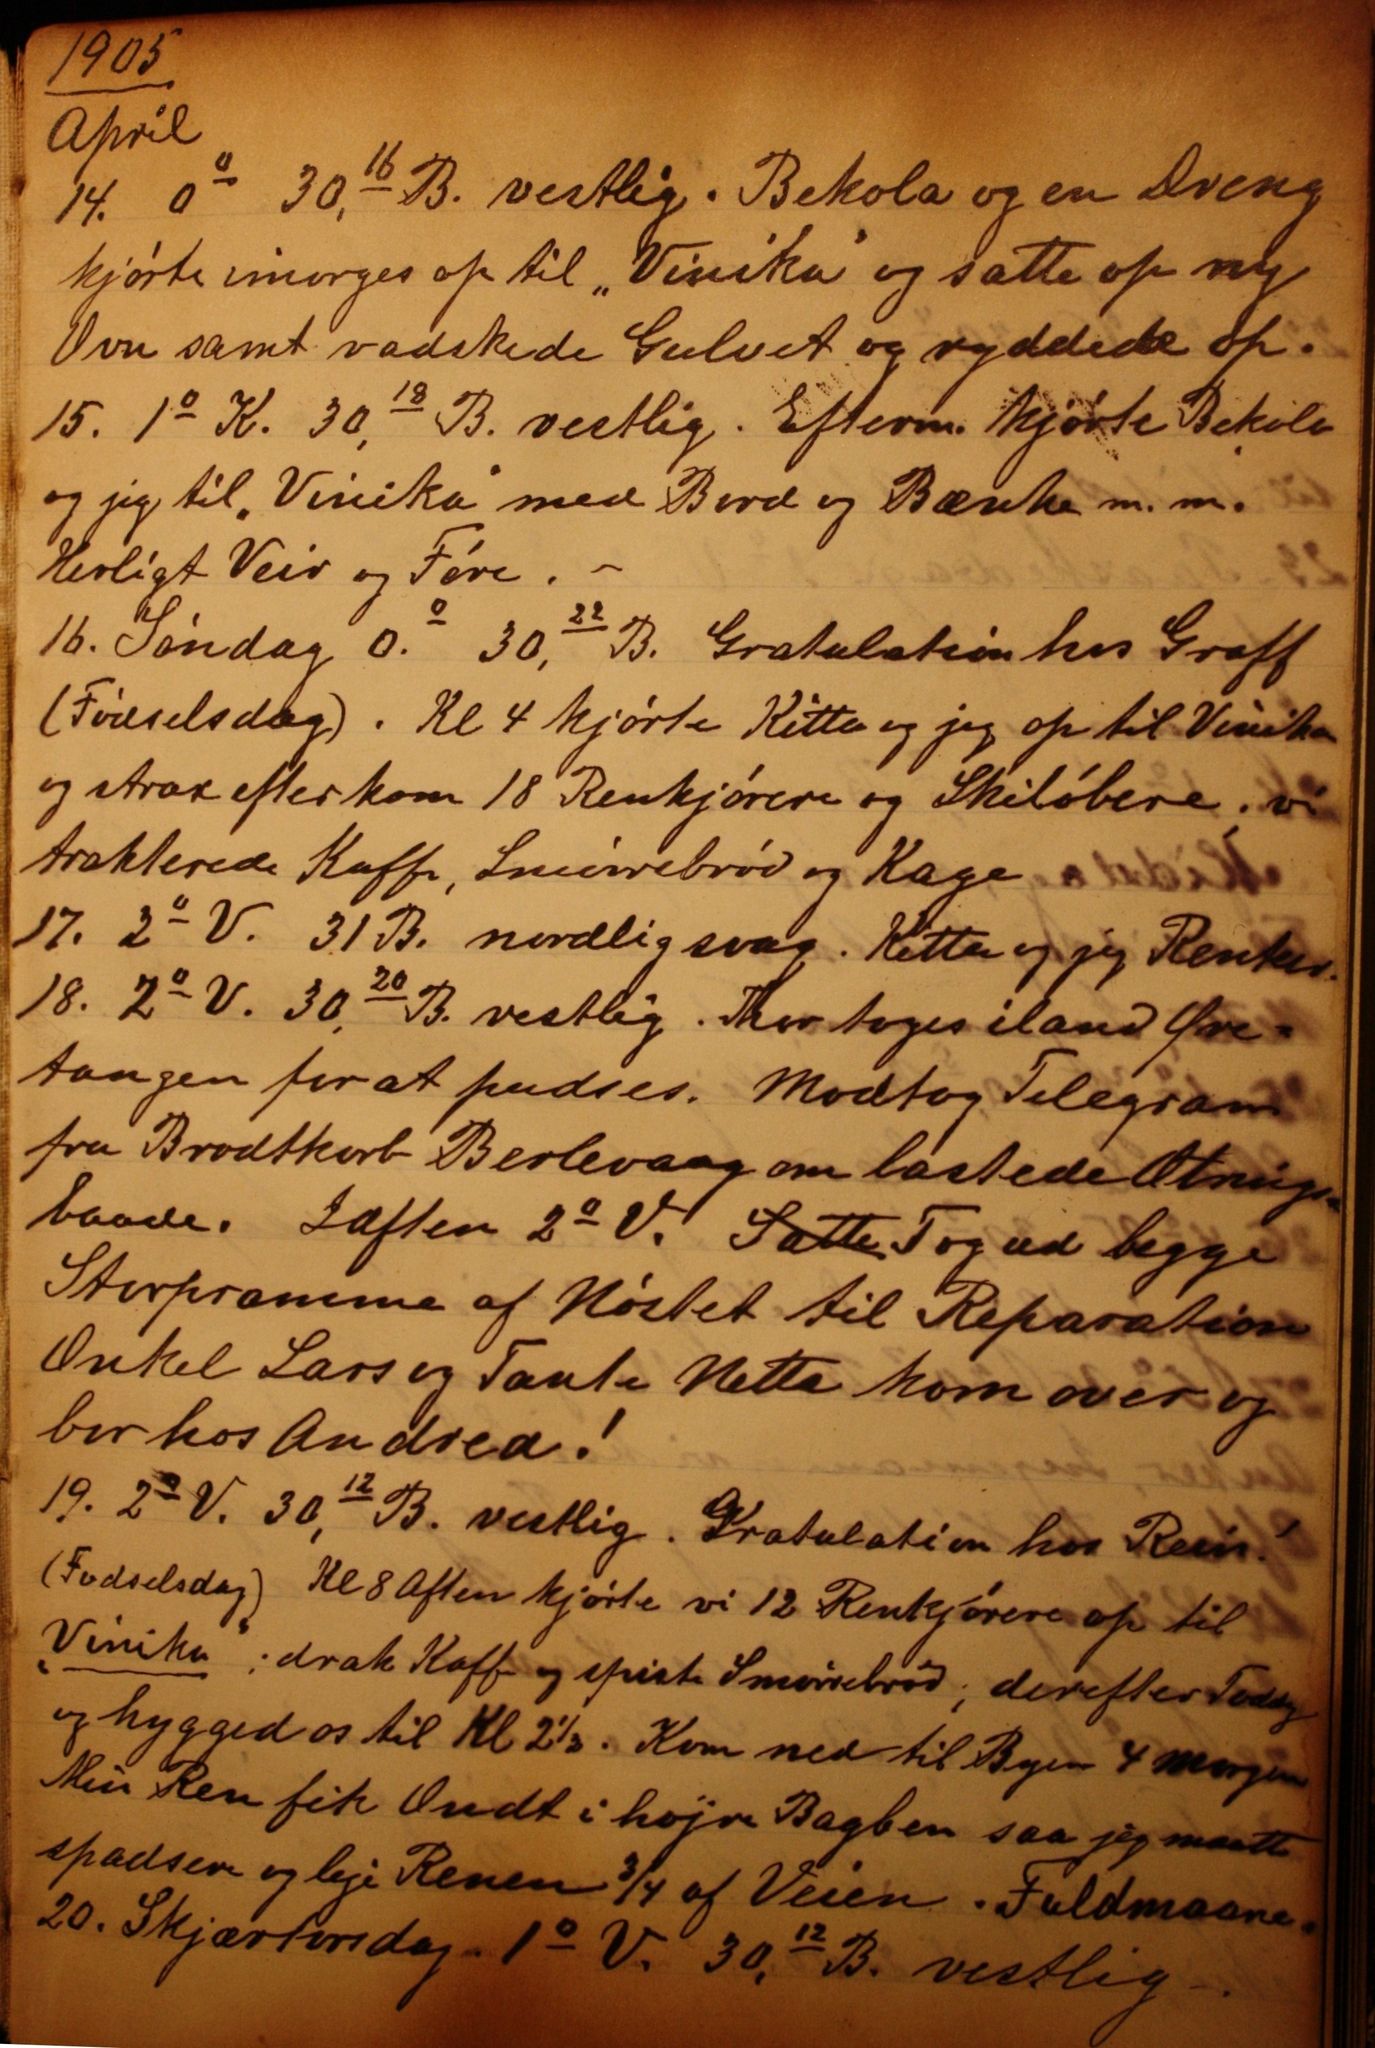 1905
April
14. 0° 30,16 B. vestlig. Bekola og en Dreng
kjórte imorges op til „Vinika" og satte op ny
Ovn samt vadskede Gulvet og ryddede op.
15. 1° K. 30,18 B. vestlig. Efterm. kjórte Bekola
og jeg til „Vinika" med Bord og Bænke m. m.
Herligt Veir og Fóre. –
16. Sóndag 0.° 30,22 B. Gratulation hos Graff
(Fódselsdag). Kl 4 kjórte Kitta og jeg op til Vinika
og strax efter kom 18 Renkjórere og Skilóbere. vi
trakterede Kaffe, Smórrebród og Kage
17. 3° V. 31 B. nordlig svag. Kitta og jeg Renkur.
18. 2° V. 30,20 B. vestlig. Thor toges iland Øre-
tangen for at pudses. Modtog Telegram
fra Brodtkorb Berlevaag om lastede Otrings-
baade. Iaften 2° V. Satte Tog ud begge
Storpramme af Nóstet til Reparation
Onkel Lars og Tante Netta kom over og
bor hos Andrea!
19. 2° V. 30,12 B. vestlig. Gratulation hos Rein!
(Fodselsdag) Kl 8 Aften kjórte vi 12 Renkjórere op til
„Vinika"; drak Kaffe og spiste Smórrebród, derefter Toddy
og hygged os til Kl 2½. Kom ned til Byen 4 Morgen
Min Ren fik Ondt i hójre Bagben saa jeg maatte
spadsere og leje Renen 3/4 af Veien. Fuldmaane.
20. Skjærtorsdag. 1° V. 30,12 B. vestlig –.